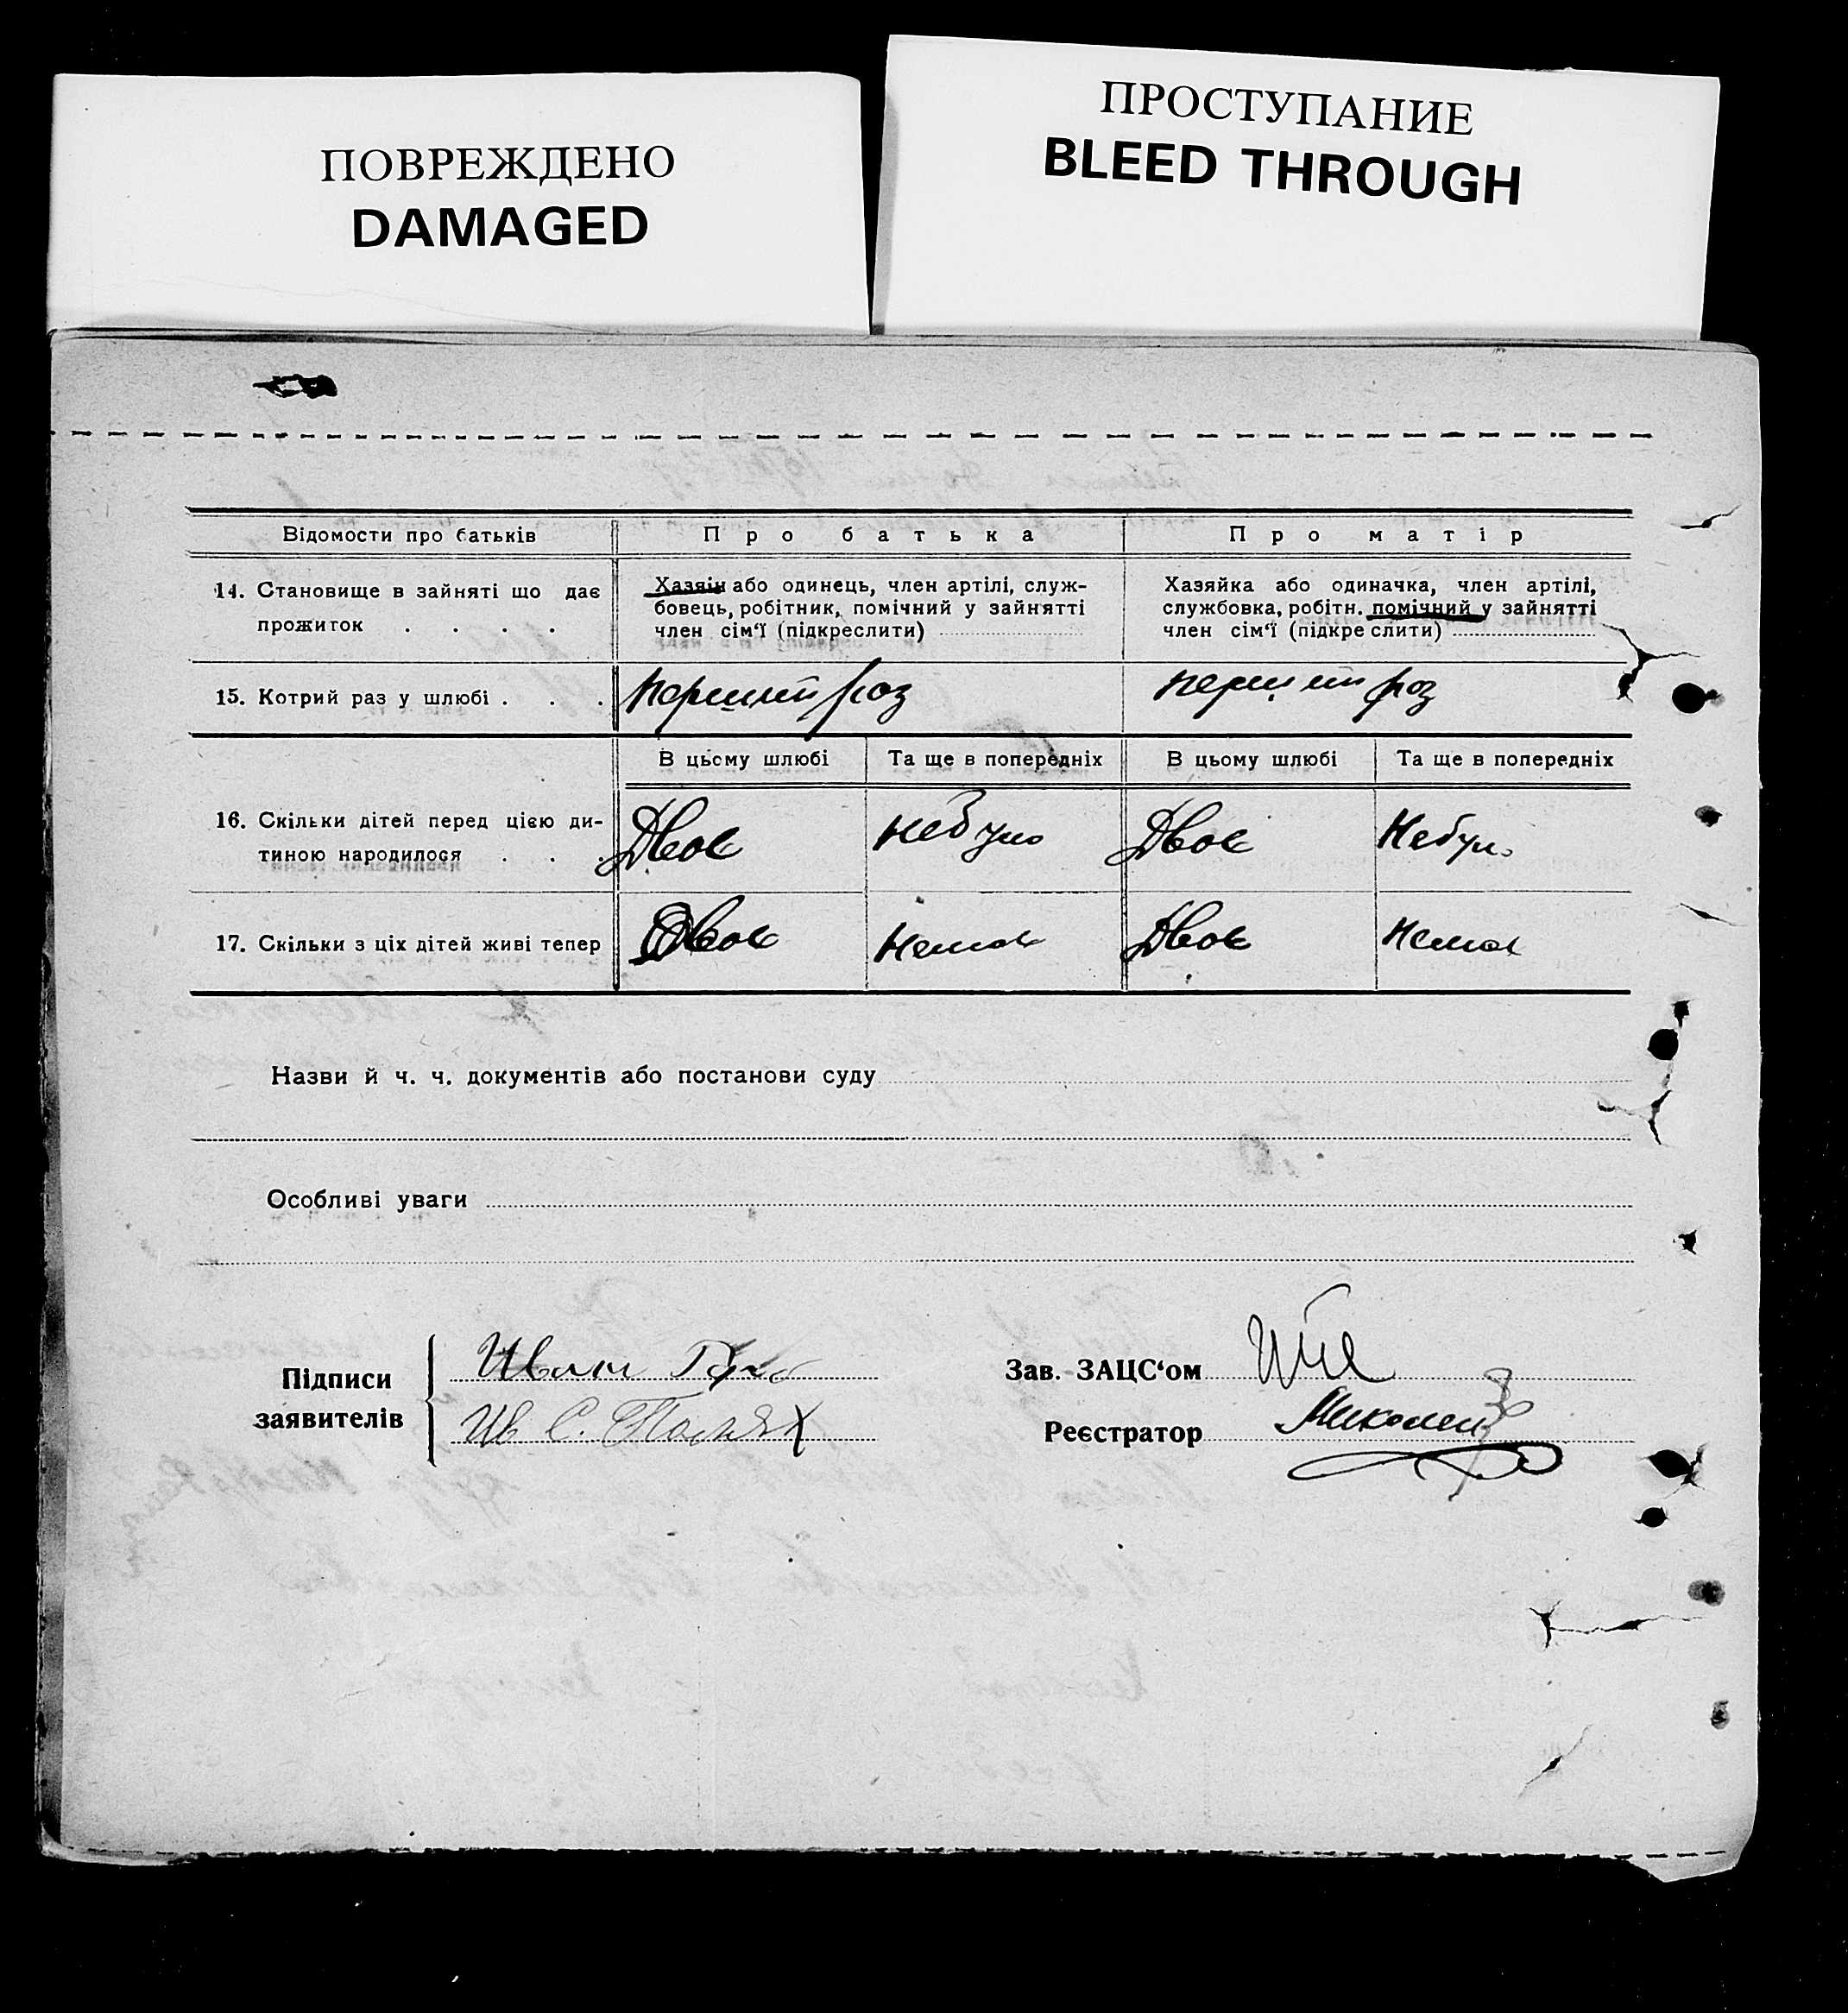 ПОВРЕЖДЕНО
DAMAGED
ПРОСТУПАНИЕ
BLEED THROUGH
Відомости про батьків
Про батька
Про матір
14. Становище в зайняті що дає
прожиток . . . .
Хазяін або одинець, член артілі, служ-
бовець, робітник, помічний у зайнятті
член сім‘ї (підкреслити)
Хазяйка або одиначка, член артілі,
службовка, робітн. помічний у зайнятті
член сім‘ї (підкреслити)
15. Котрий раз у шлюбі . . .
перший раз
перший раз
В цьому шлюбі
Та ще в попередніх
В цьому шлюбі
Та ще в попередніх
16. Скільки дітей перед цією ди-
тиною народилося . . .
Двое
небуло
Двое
Небуло
17. Скільки з ціх дітей живі тепер
Двое
Немає
Двое
Немає
Назви й ч. ч. документів або постанови суду
Особливі уваги
Підписи
заявителів
Иван
Ив С.
Зав. ЗАЦС‘ом
Реєстратор